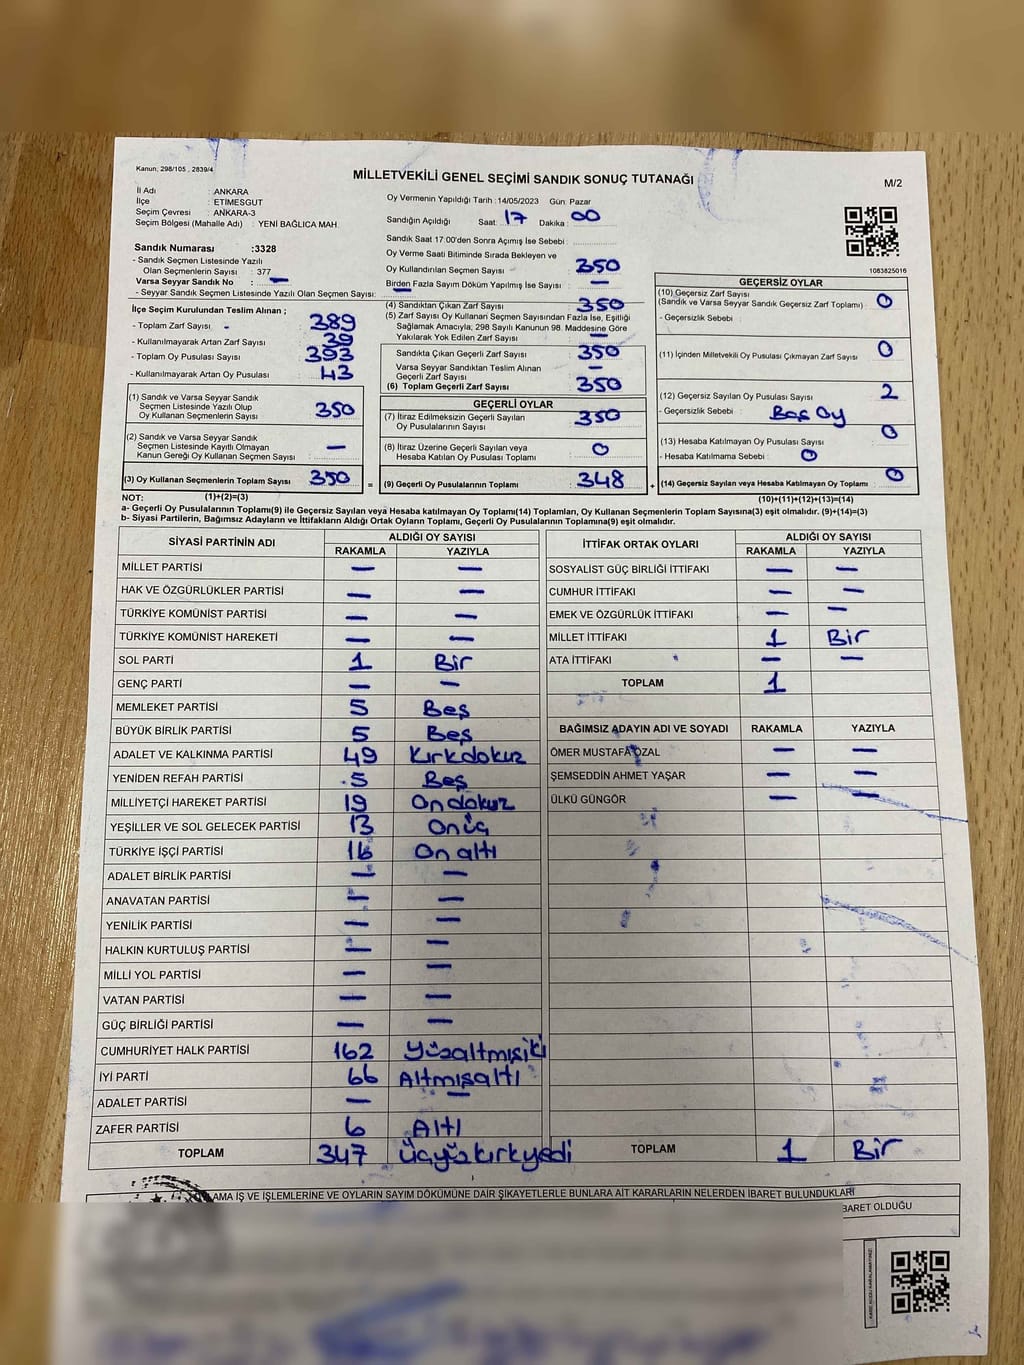 Kanun; 298/105 , 2839/4
MİLLETVEKİLİ GENEL SEÇİMİ SANDIK SONUÇ TUTANAĞI
M/2
İl Adı : ANKARA
İlçe : ETİMESGUT
Seçim Çevresi : ANKARA-3
Seçim Bölgesi (Mahalle Adı) : YENİ BAĞLICA MAH.
Sandık Numarası :3328
- Sandık Seçmen Listesinde Yazılı
Olan Seçmenlerin Sayısı : 377
Varsa Seyyar Sandık No : —
- Seyyar Sandık Seçmen Listesinde Yazılı Olan Seçmen Sayısı:
İlçe Seçim Kurulundan Teslim Alınan ;
- Toplam Zarf Sayısı 389
- Kullanılmayarak Artan Zarf Sayısı 39
- Toplam Oy Pusulası Sayısı 393
- Kullanılmayarak Artan Oy Pusulası 43
(1) Sandık ve Varsa Seyyar Sandık
Seçmen Listesinde Yazılı Olup
Oy Kullanan Seçmenlerin Sayısı 350
(2) Sandık ve Varsa Seyyar Sandık
Seçmen Listesinde Kayıtlı Olmayan
Kanun Gereği Oy Kullanan Seçmen Sayısı : —
(3) Oy Kullanan Seçmenlerin Toplam Sayısı 350 =
Oy Vermenin Yapıldığı Tarih : 14/05/2023 Gün: Pazar
Sandığın Açıldığı Saat: 17 Dakika : 00
Sandık Saat 17:00'den Sonra Açımış İse Sebebi :
Oy Verme Saati Bitiminde Sırada Bekleyen ve
Oy Kullandırılan Seçmen Sayısı : 350
Birden Fazla Sayım Döküm Yapılmış İse Sayısı : —
(4) Sandıktan Çıkan Zarf Sayısı 350
(5) Zarf Sayısı Oy Kullanan Seçmen Sayısından Fazla İse, Eşitliği
Sağlamak Amacıyla; 298 Sayılı Kanunun 98. Maddesine Göre
Yakılarak Yok Edilen Zarf Sayısı : —
Sandıkta Çıkan Geçerli Zarf Sayısı 350
Varsa Seyyar Sandıktan Teslim Alınan
Geçerli Zarf Sayısı —
(6) Toplam Geçerli Zarf Sayısı 350
GEÇERLİ OYLAR
(7) İtiraz Edilmeksizin Geçerli Sayılan
Oy Pusulalarının Sayısı 350
(8) İtiraz Üzerine Geçerli Sayılan veya
Hesaba Katılan Oy Pusulası Toplamı 0
(9) Geçerli Oy Pusulalarının Toplamı 348 +
1083825016
GEÇERSİZ OYLAR
(10) Geçersiz Zarf Sayısı
(Sandık ve Varsa Seyyar Sandık Geçersiz Zarf Toplamı) : 0
- Geçersizlik Sebebi :
(11) İçinden Milletvekili Oy Pusulası Çıkmayan Zarf Sayısı 0
(12) Geçersiz Sayılan Oy Pusulası Sayısı 2
- Geçersizlik Sebebi : Boş Oy
(13) Hesaba Katılmayan Oy Pusulası Sayısı 0
- Hesaba Katılmama Sebebi : 0
(14) Geçersiz Sayılan veya Hesaba Katılmayan Oy Toplamı 0
NOT: (1)+(2)=(3) (10)+(11)+(12)+(13)=(14)
a- Geçerli Oy Pusulalarının Toplamı(9) ile Geçersiz Sayılan veya Hesaba katılmayan Oy Toplamı(14) Toplamları, Oy Kullanan Seçmenlerin Toplam Sayısına(3) eşit olmalıdır. (9)+(14)=(3)
b- Siyasi Partilerin, Bağımsız Adayların ve İttifakların Aldığı Ortak Oyların Toplamı, Geçerli Oy Pusulalarının Toplamına(9) eşit olmalıdır.
SİYASİ PARTİNİN ADI ALDIĞI OY SAYISI
RAKAMLA YAZIYLA
MİLLET PARTİSİ — —
HAK VE ÖZGÜRLÜKLER PARTİSİ — —
TÜRKİYE KOMÜNİST PARTİSİ — —
TÜRKİYE KOMÜNİST HAREKETİ — —
SOL PARTİ 1 Bir
GENÇ PARTİ — —
MEMLEKET PARTİSİ 5 Beş
BÜYÜK BİRLİK PARTİSİ 5 Beş
ADALET VE KALKINMA PARTİSİ 49 Kırkdokuz
YENİDEN REFAH PARTİSİ 5 Beş
MİLLİYETÇİ HAREKET PARTİSİ 19 Ondokuz
YEŞİLLER VE SOL GELECEK PARTİSİ 13 Onüç
TÜRKİYE İŞÇİ PARTİSİ 16 On altı
ADALET BİRLİK PARTİSİ — —
ANAVATAN PARTİSİ — —
YENİLİK PARTİSİ — —
HALKIN KURTULUŞ PARTİSİ — —
MİLLİ YOL PARTİSİ — —
VATAN PARTİSİ — —
GÜÇ BİRLİĞİ PARTİSİ — —
CUMHURİYET HALK PARTİSİ 162 Yüzaltmışiki
İYİ PARTİ 66 Altmışaltı
ADALET PARTİSİ — —
ZAFER PARTİSİ 6 Altı
TOPLAM 347 Üçyüzkırkyedi
İTTİFAK ORTAK OYLARI ALDIĞI OY SAYISI
RAKAMLA YAZIYLA
SOSYALİST GÜÇ BİRLİĞİ İTTİFAKI — —
CUMHUR İTTİFAKI — —
EMEK VE ÖZGÜRLÜK İTTİFAKI — —
MİLLET İTTİFAKI 1 Bir
ATA İTTİFAKI — —
TOPLAM 1
BAĞIMSIZ ADAYIN ADI VE SOYADI RAKAMLA YAZIYLA
ÖMER MUSTAFA ÖZAL — —
ŞEMSEDDİN AHMET YAŞAR — —
ÜLKÜ GÜNGÖR — —
TOPLAM 1 Bir
AMA İŞ VE İŞLEMLERİNE VE OYLARIN SAYIM DÖKÜMÜNE DAİR ŞİKAYETLERLE BUNLARA AİT KARARLARIN NELERDEN İBARET BULUNDUKLARI
BARET OLDUĞU